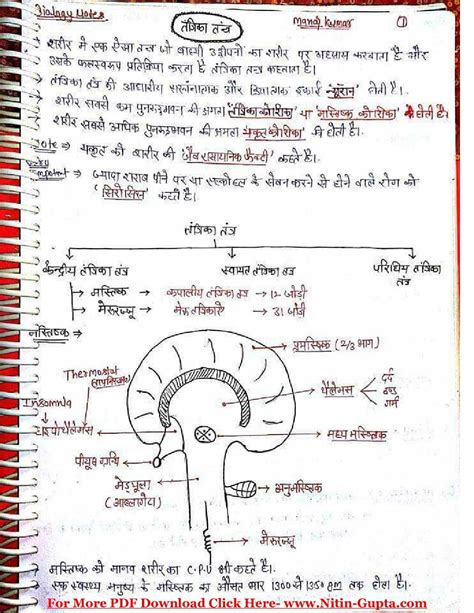 Biology Notes
तंत्रिका तंत्र
Manoj Kumar
1
शरीर में एक ऐसा तन्त्र जो बाहरी उद्दीपनों का शरीर पर अहसास करवाता है और
उसके फलस्वरूप प्रतिक्रिया करता है तंत्रिका तन्त्र कहलाता है।
तंत्रिका तंत्र की आधारीय संरचनात्मक और क्रियात्मक इकाई 'न्यूरॉन' होती है।
शरीर सबसे कम पुनरूद्भवन की क्षमता 'तंत्रिका कोशिका' या 'मस्तिष्क कोशिका' में होती है।
शरीर सबसे अधिक पुनरूद्भवन की क्षमता 'यकृत कोशिका' में होती है।
Note → यकृत को शरीर की 'जैव रासायनिक फैक्ट्री' कहते है।
⇒ ज्यादा शराब पीने पर या एल्कोहल के सेवन करने से होने वाले रोग को
'सिरोसिस' कहते है।
तंत्रिका तंत्र
केन्द्रीय तंत्रिका तंत्र
स्वायत तंत्रिका तंत्र
परिधिय तंत्रिका
तंत्र
→ मस्तिष्क → कपालीय तंत्रिका तंत्र → 12 जोड़ी
→ मेरूरज्जू → मेरू तंत्रिकाएं → 31 जोड़ी
मस्तिष्क ⇒
प्रमस्तिष्क (2/3 भाग)
Thermostat
Insomnia
थैलेमस
दर्द
ठण्ड
गर्म
हाइपोथैलेमस
मध्य मस्तिष्क
पीयूष ग्रन्थि
मेड्यूला
अनुमस्तिष्क
मेरूरज्जू
मस्तिष्क को मानव शरीर का C.P.U भी कहते है।
एक स्वस्थ मनुष्य के मस्तिष्क का औसत भार 1300 से 1350 gm तक होता है।
For More PDF Download Click Here- www.Nitin-Gupta.com